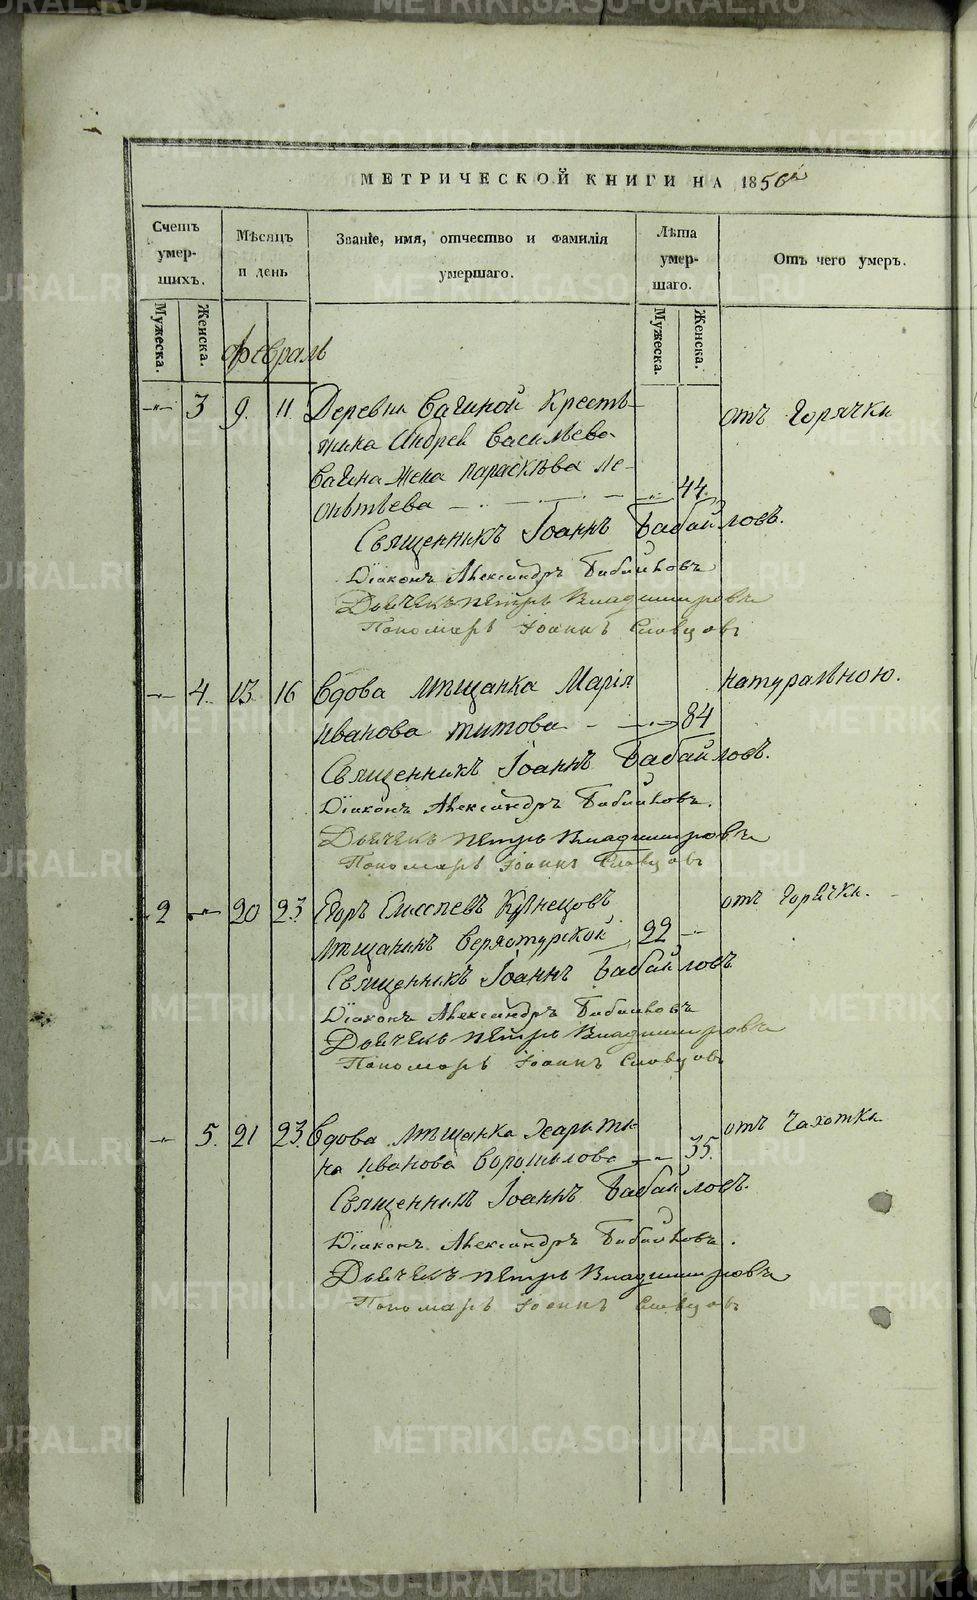 МЕТРИЧЕСКОЙ КНИГИ НА 1856й
Счетъ умершихъ.
Мѣсяцъ и день
Званіе, имя, отчество и фамилія умершаго.
Лѣта умершаго.
Отъ чего умеръ.
Мужеска.
Женска.
Мужеска.
Женска.
февраль
3 9. 11. Деревни Вагиной Кресть- отъ горячки
янина Андрея Васильева
Вагина жена Параскѣва Ле-
онтьева 44.
Священникъ Іоаннъ Бабайловъ.
Діаконъ Александръ Бабайловъ
Дьячекъ Петръ Владимировъ
Пономарь Іоаннъ Словцовъ
4. 13. 16 Вдова мѣщанка Марія натуральною.
Иванова Титова 84
Священникъ Іоаннъ Бабайловъ.
Діаконъ Александръ Бабайловъ.
Дьячекъ Петръ Владимировъ
Пономарь Іоаннъ Словцовъ
2 20 23 Егоръ Елисѣевъ Кузнецовъ отъ горячки.
мѣщанинъ Верхотурской 22
Священникъ Іоаннъ Бабайловъ
Діаконъ Александръ Бабайловъ
Дьячекъ Петръ Владимировъ
Пономарь Іоаннъ Словцовъ
5. 21 23. Вдова мѣщанка Харити- отъ чахотки
на Иванова Ворошилова 35.
Священникъ Іоаннъ Бабайловъ.
Діаконъ Александръ Бабайловъ.
Дьячекъ Петръ Владимировъ
Пономарь Іоаннъ Словцовъ
METRIKI.GASO-URAL.RU